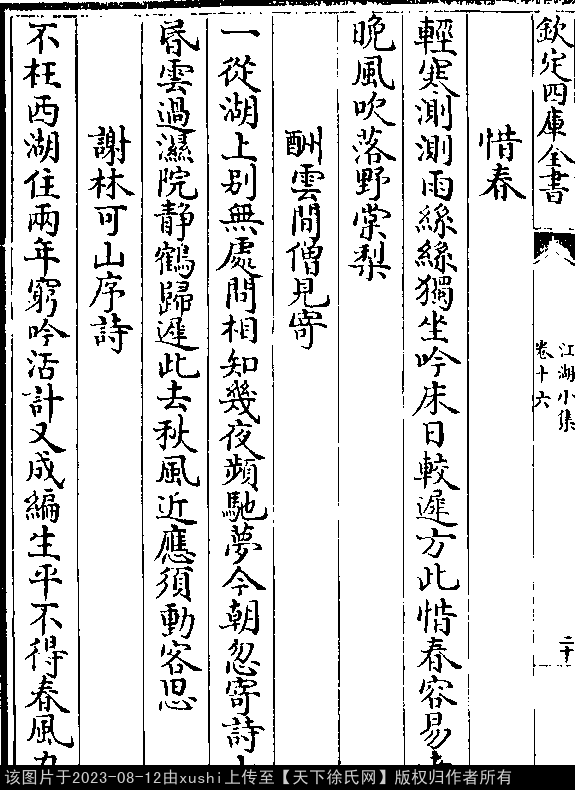 欽定四庫全書
江湖小集
卷十六
二十
惜春
輕寒測測雨絲絲獨坐吟床日較遲方此惜春容易
晚風吹落野棠梨
酬雲間僧見寄
一從湖上别無處問相知幾夜頻馳夢今朝忽寄詩
昬雲過濕院静鶴歸遲此去秋風近應須動客思
謝林可山序詩
不枉西湖住兩年窮吟活計又成編生平不得春風
该图片于2023-08-12由xushi上传至【天下徐氏网】版权归作者所有